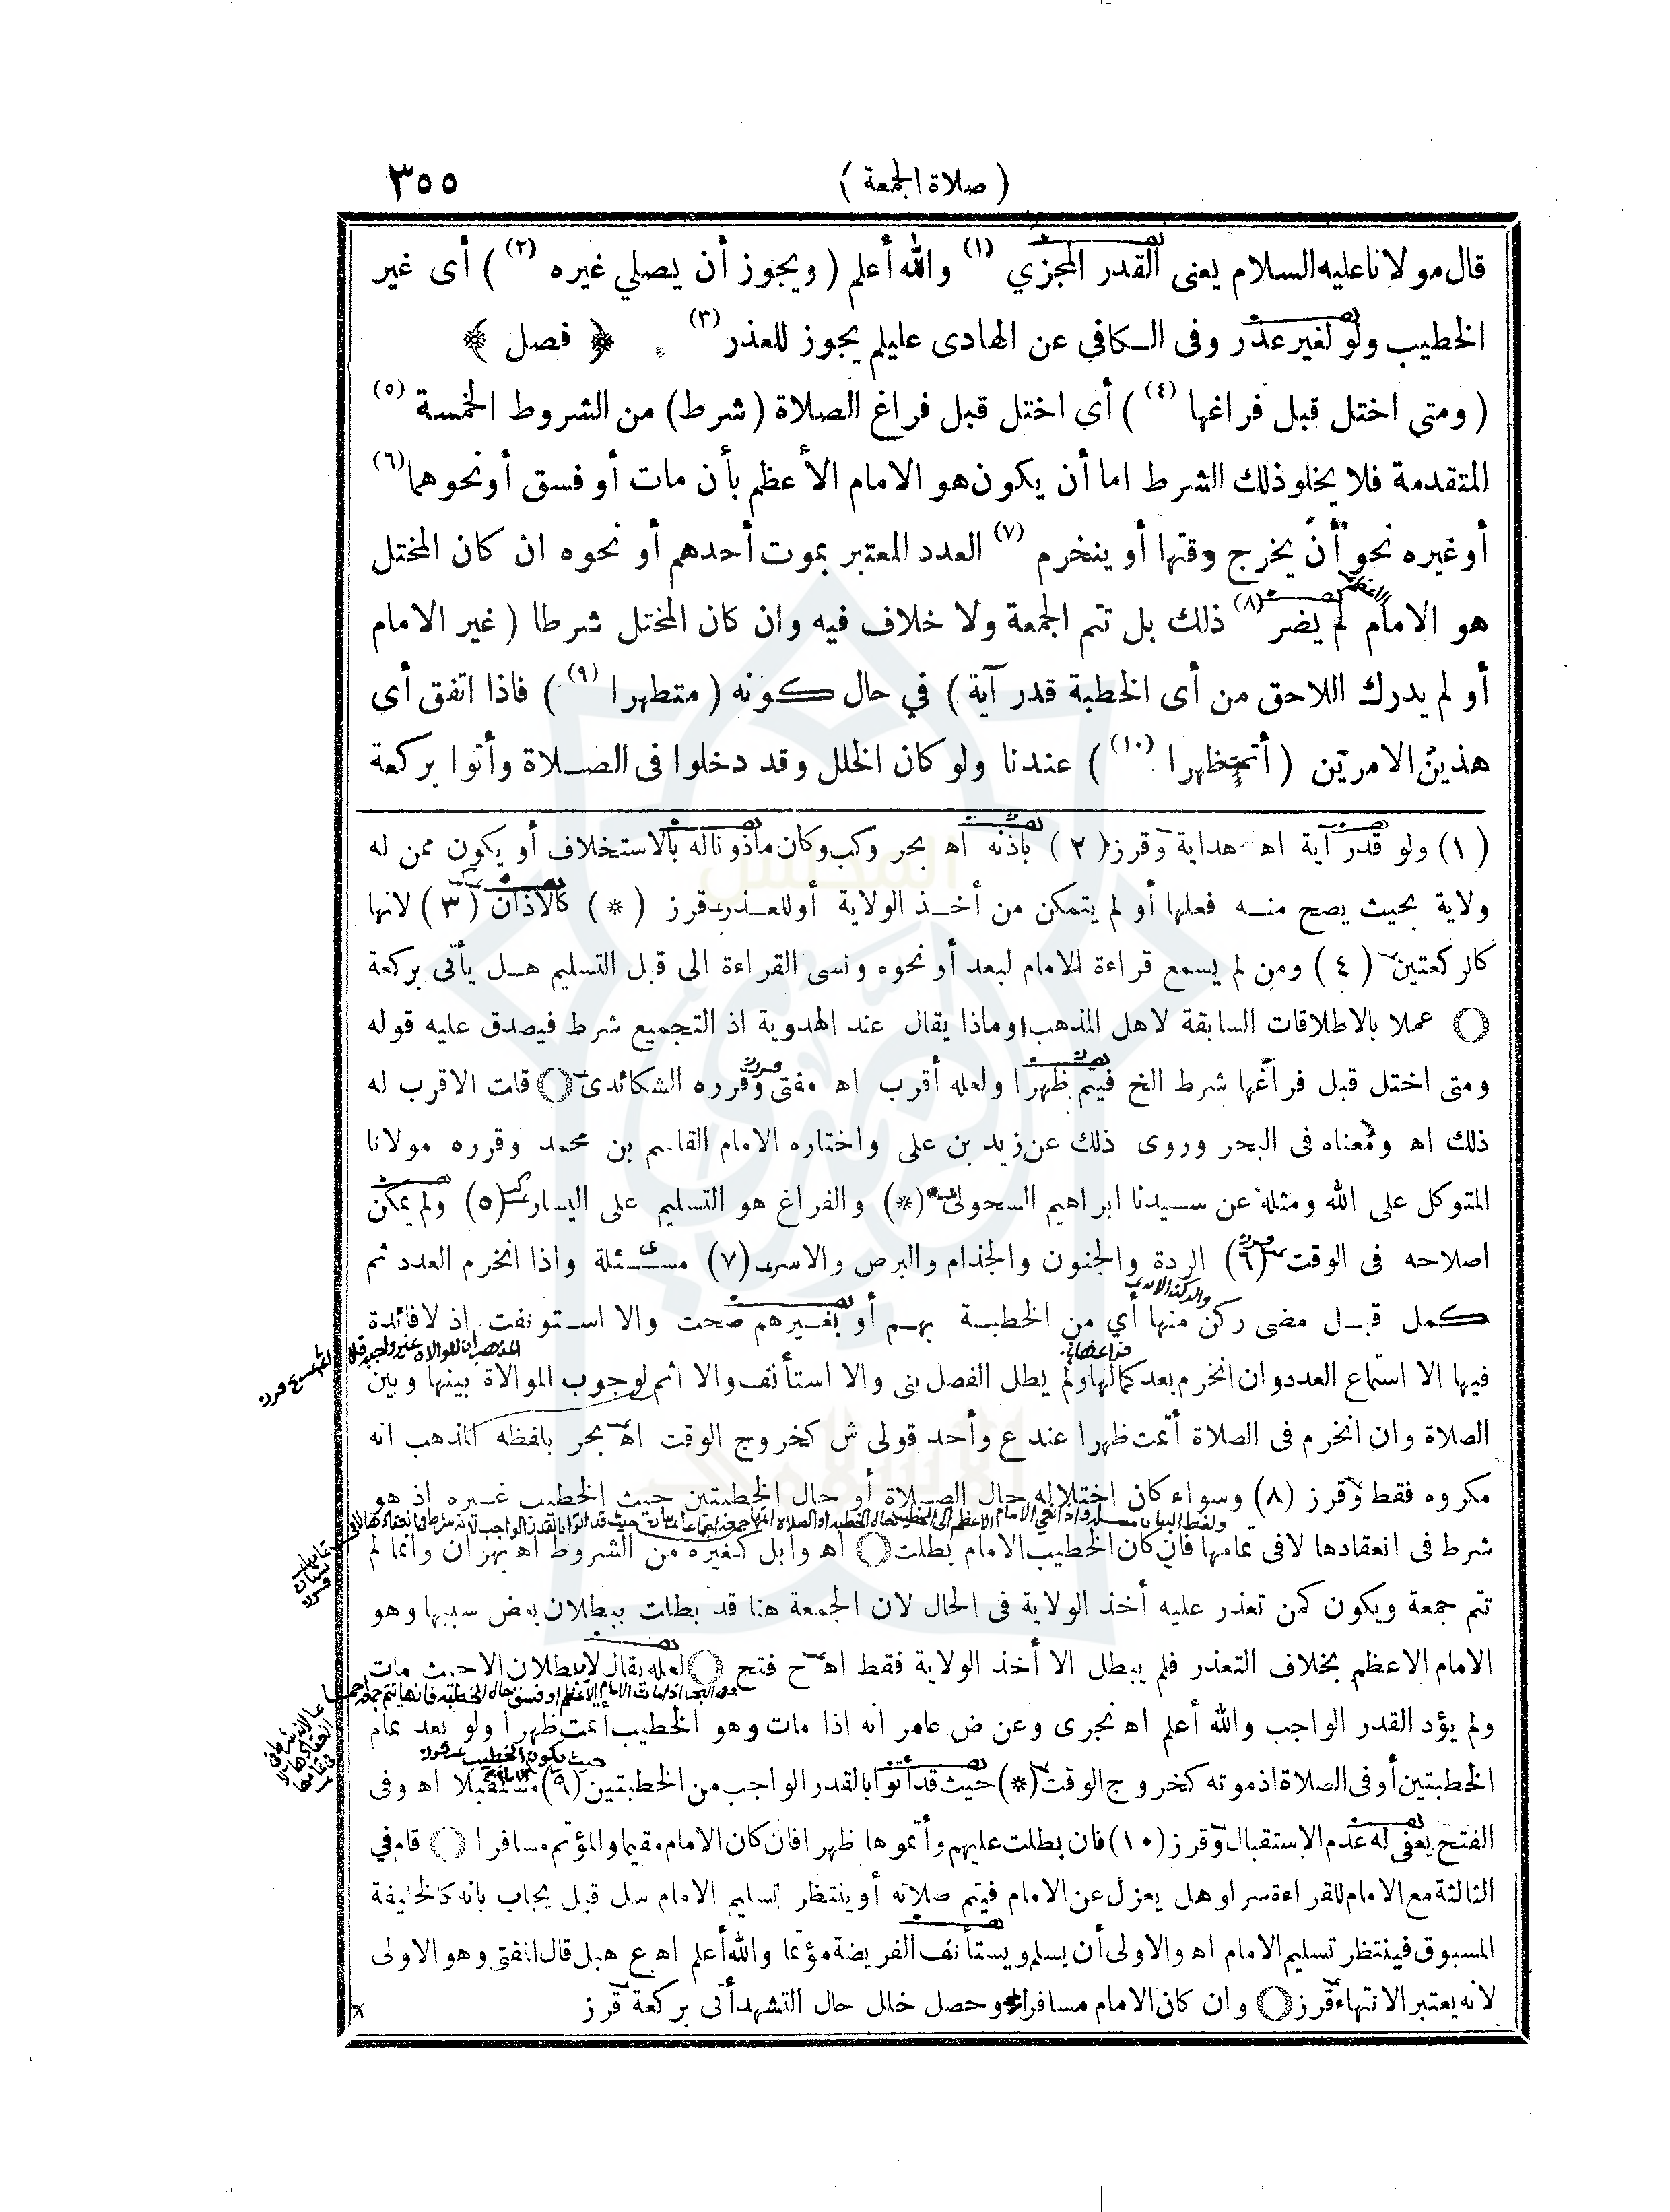 ( صلاة الجمعة )
٣٥٥
قال مولانا عليه السلام يعنى القدر المجزي (١) والله أعلم ( ويجوز أن يصلي غيره (٢) ) أى غير
الخطيب ولو لغير عذر وفى الكافي عن الهادى عليلم يجوز للعذر (٣) . ﴿ فصل ﴾
( ومتى اختل قبل فراغها (٤) ) أى اختل قبل فراغ الصلاة ( شرط ) من الشروط الخمسة (٥)
المتقدمة فلا يخلو ذلك الشرط اما أن يكون هو الامام الأعظم بأن مات أو فسق أو نحوهما (٦)
أو غيره نحو أن يخرج وقتها أو ينخرم (٧) العدد المعتبر بموت أحدهم أو نحوه ان كان المختل
هو الامام الاعظم لم يضر (٨) ذلك بل تتم الجمعة ولا خلاف فيه وان كان المختل شرطا ( غير الامام
أو لم يدرك اللاحق من أى الخطبة قدر آية ) في حال كونه ( متطهرا (٩) ) فاذا اتفق أى
هذين الامرين ( أتمت ظهرا (١٠) ) عندنا ولو كان الخلل وقد دخلوا فى الصلاة وأتوا بركعة
(١) ولو قدر آية اه هداية وقرز (٢) باذنه اه بحر وكب وكان مأذونا له بالاستخلاف أو يكون ممن له
ولاية بحيث يصح منه فعلها أو لم يتمكن من أخذ الولاية أو للعذر قرز (*) كالاذان (٣) لانها
كالركعتين (٤) ومن لم يسمع قراءة الامام لبعد أو نحوه ونسى القراءة الى قبل التسليم هل يأتى بركعة
عملا بالاطلاقات السابقة لاهل المذهب أو ماذا يقال عند الهدوية اذ التجميع شرط فيصدق عليه قوله
ومتى اختل قبل فراغها شرط الخ فيتم ظهرا ولعله أقرب اه مفتى وقرره الشكائدى قلت الاقرب له
ذلك اه ومعناه فى البحر وروى ذلك عن زيد بن على واختاره الامام القاسم بن محمد وقرره مولانا
المتوكل على الله ومثله عن سيدنا ابراهيم السحولى (*) والفراغ هو التسليم على اليسار (٥) ولم يمكن
اصلاحه فى الوقت (٦) الردة والجنون والجذام والبرص والاسر (٧) مسئلة واذا انخرم العدد ثم
كمل قبل مضى ركن منها أي من الخطبة بهم أو بغيرهم صحت والا استونفت اذ لا فائدة
فيها الا استماع العدد وان انخرم بعد كمالها ولم يطل الفصل بنى والا استأنف والا اثم لوجوب الموالاة بينها وبين
الصلاة وان انخرم فى الصلاة أتمت ظهرا عند ع وأحد قولى ش كخروج الوقت اه بحر بلفظه المذهب انه
مكروه فقط وقرز (٨) وسواء كان اختلاله حال الصلاة أو حال الخطبتين حيث الخطيب غيره اذ هو
شرط فى انعقادها لافى تمامها فان كان الخطيب الامام بطلت اه وابل كغيره من الشروط اه بهران وانما لم
تتم جمعة ويكون كمن تعذر عليه أخذ الولاية فى الحال لان الجمعة هنا قد بطلت ببطلان بعض سببها وهو
الامام الاعظم بخلاف التعذر فلم يبطل الا أخذ الولاية فقط اه ح فتح لعله يقال لابطلان الا حيث مات
ولم يؤد القدر الواجب والله أعلم اه نجرى وعن ض عامر انه اذا مات وهو الخطيب اتمت ظهرا ولو بعد تمام
الخطبتين أو فى الصلاة اذ موته كخروج الوقت (*) حيث قد أتوا بالقدر الواجب من الخطبتين (٩) مستقبلا اه وفى
الفتح يعفى له عدم الاستقبال وقرز (١٠) فان بطلت عليهم وأتموها ظهرا فان كان الامام مقيما والمؤتم مسافرا قام في
الثالثة مع الامام للقراءة سرا وهل يعزل عن الامام فيتم صلاته أو ينتظر تسليم الامام سل قيل يجاب بانه كالخليفة
المسبوق فينتظر تسليم الامام اه والاولى أن يسلم ويستأنف الفريضة مؤتما والله أعلم اه ع هبل قال المفتى وهو الاولى
لانه يعتبر الانتهاء قرز وان كان الامام مسافرا وحصل خلل حال التشهد أتى بركعة قرز